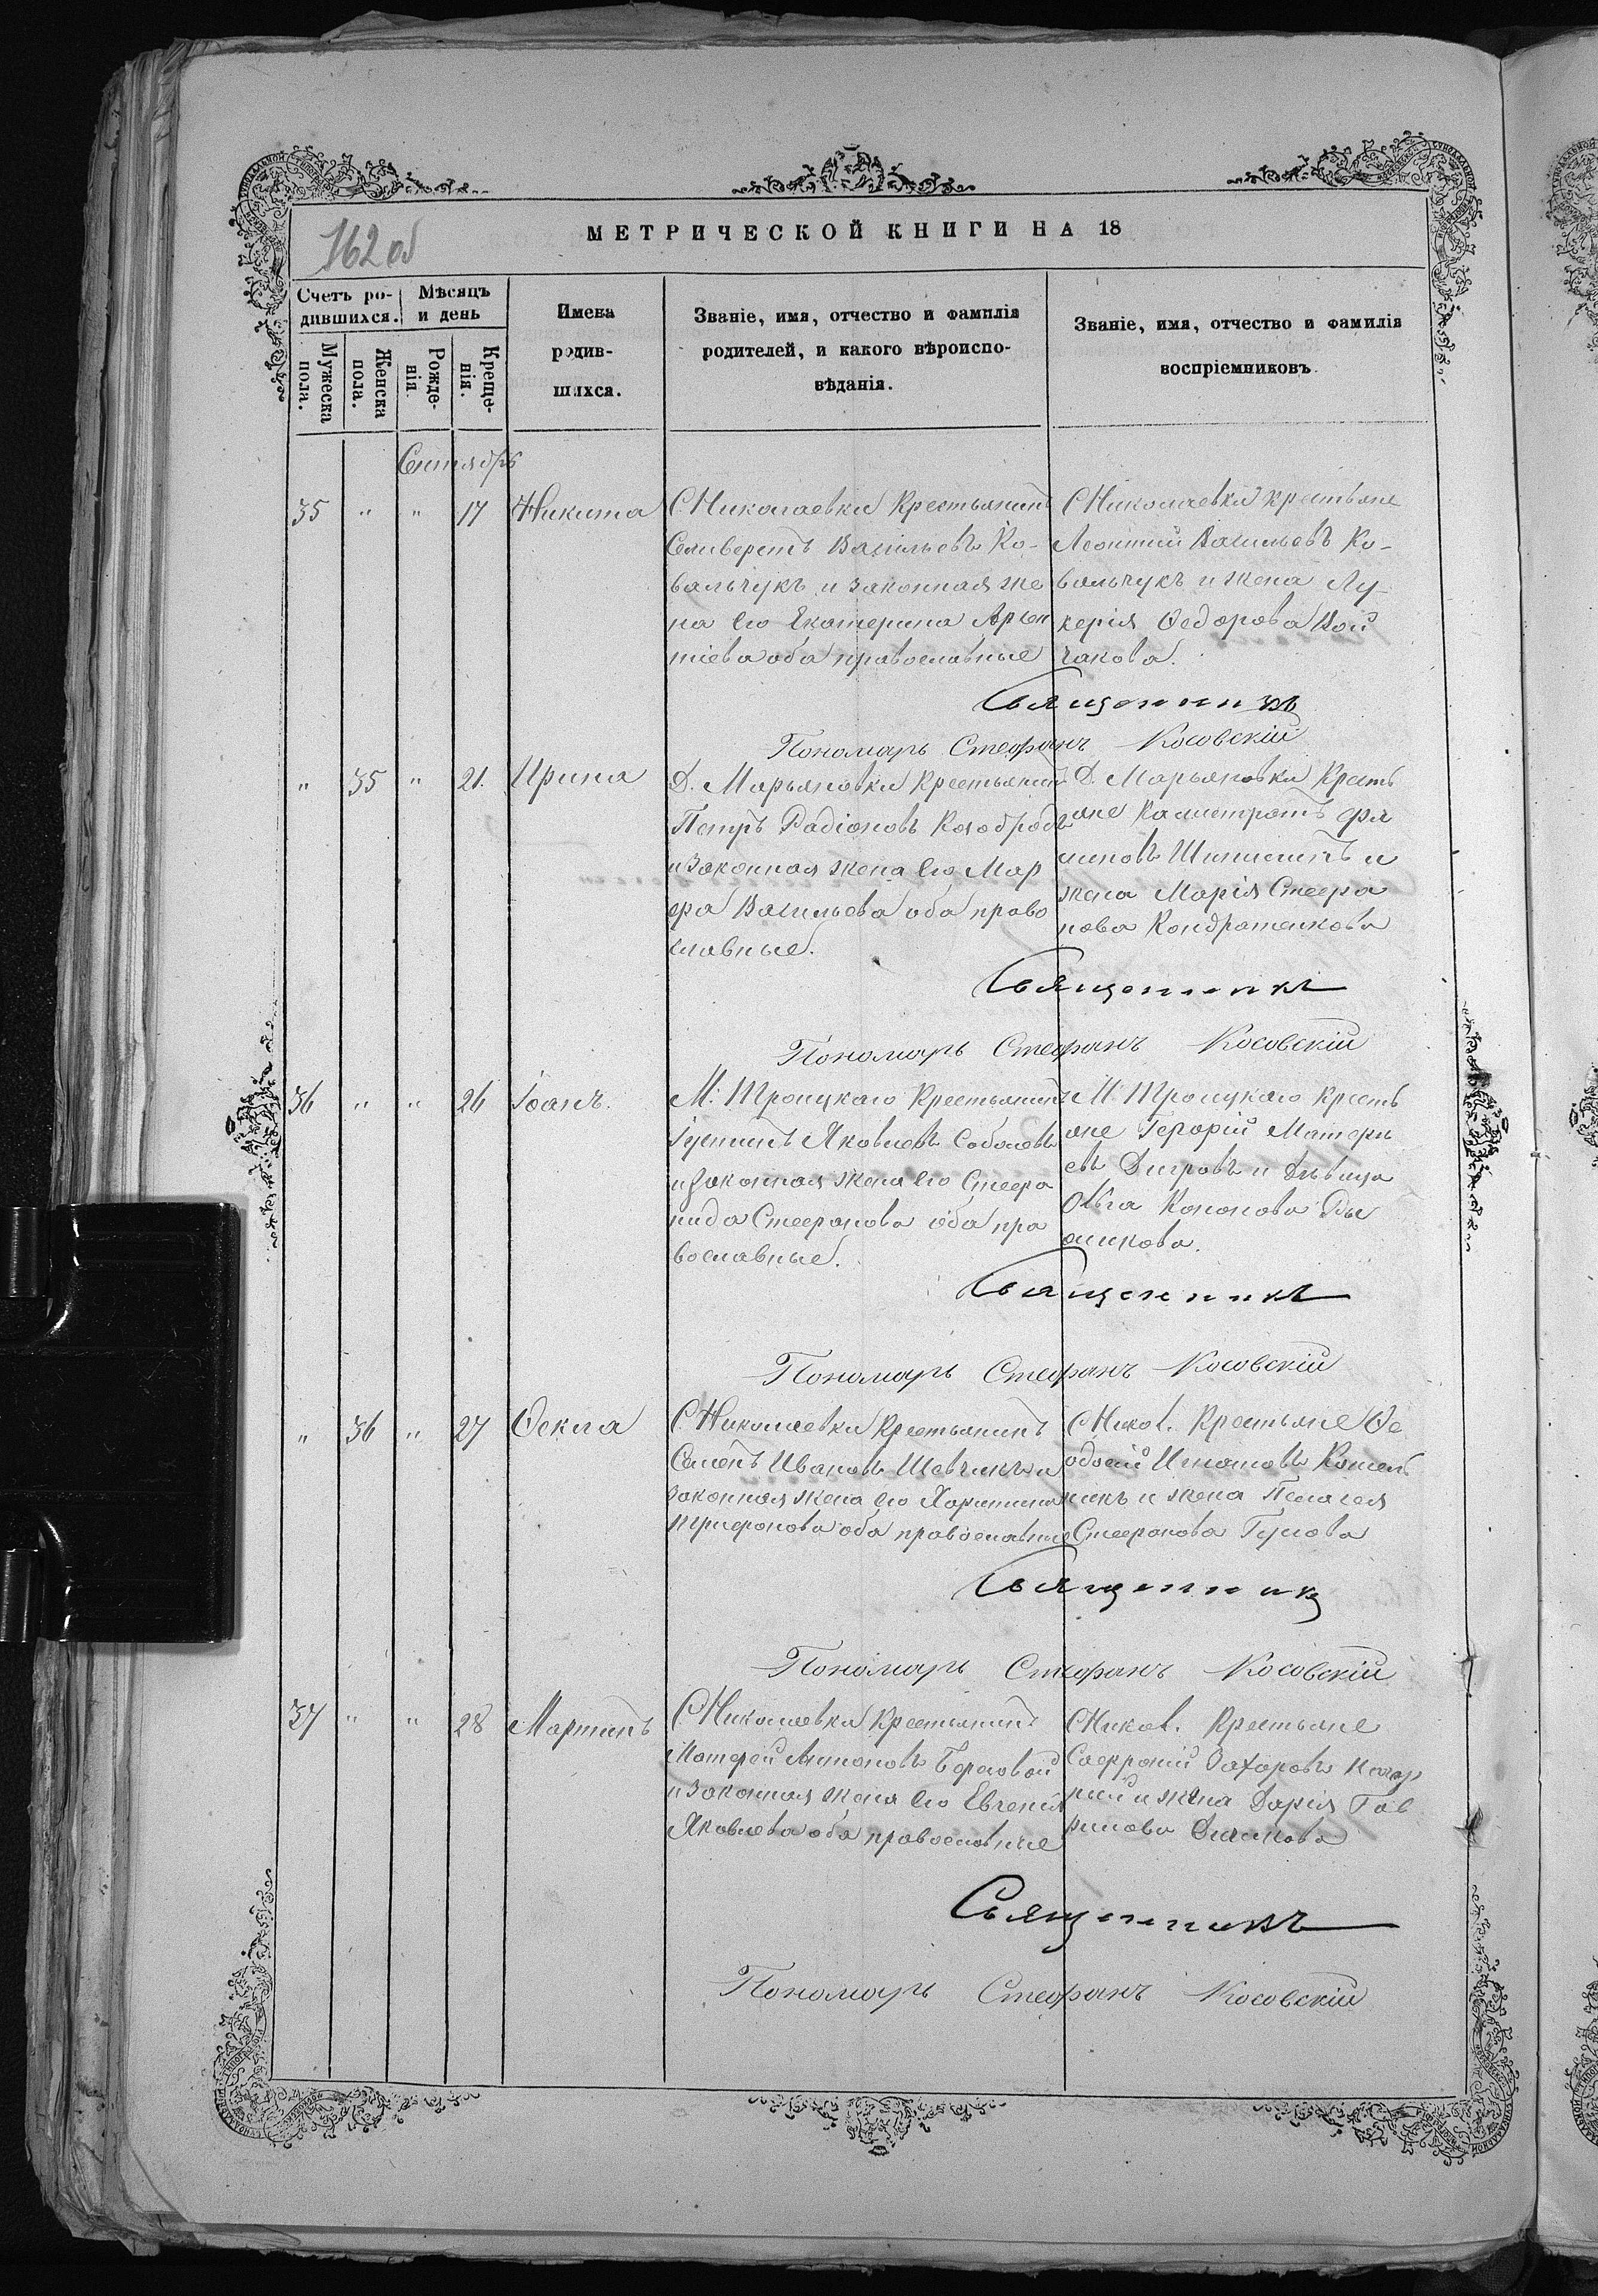 162 об
МЕТРИЧЕСКОЙ КНИГИ НА 18
Счетъ ро-
дившихся.
Мѣсяцъ
и день
Мужеска
пола.
Женска
пола.
Рожде-
нія.
Креще-
нія.
Имена
родив-
шихся.
Званіе, имя, отчество и фамилія
родителей, и какого вѣроиспо-
вѣданія.
Званіе, имя, отчество и фамилія
воспріемниковъ.
Сентябрь
35 " " 17 Никита
С Николаевки Крестьянинъ
Селиверстъ Васильевъ Ко-
вальчукъ и законная же
на его Екатерина
тіева оба православные
С Николаевки крестьяне
Леонтій Васильевъ Ко-
вальчукъ и жена Лу-
керія Ѳедорова Вой
чакова.
Священникъ
Пономарь Стефанъ Косовскій
" 35 " 21. Ирина
Д. Марьяновки Крестьянинъ
Петръ Радіоновъ Колобродъ
и законная жена его Мар
фа Васильева оба право
славные.
Д. Марьяновки Кресть
яне Калистратъ Фи
миновъ и
жена Марія Стефа
нова Кондратенкова
Священникъ
Пономарь Стефанъ Косовскій
36 " " 26 Іоанъ.
М. Троицкаго Крестьянинъ
Іустинъ Яковлевъ Соболевъ
и законная жена его Стефа
нида Стефанова оба пра
вославные.
М. Троицкаго Кресть
яне Матеѳи
евъ и дѣвица
Ольга Кононова
Священникъ
Пономарь Стефанъ Косовскій
" 36 " 27 Ѳекла
С Николаевки Крестьянинъ
Семенъ Ивановъ Шевчикъ и
законная жена его Харитина
Трифонова оба православные
С Никол. Крестьяне Ѳе
одосій Игнатовъ Котель
никъ и жена Пелагея
Стефанова Гусова
Священникъ
Пономарь Стефанъ Косовскій
37 " " 28 Мартинъ
С Николаевки Крестьянинъ
Матфей Антоновъ Береговой
и законная жена его Евгенія
Яковлева оба православные
С Никол. Крестьяне
Софроній Захаровъ
и жена Дарія Гав
рилова
Священникъ
Пономарь Стефанъ Косовскій